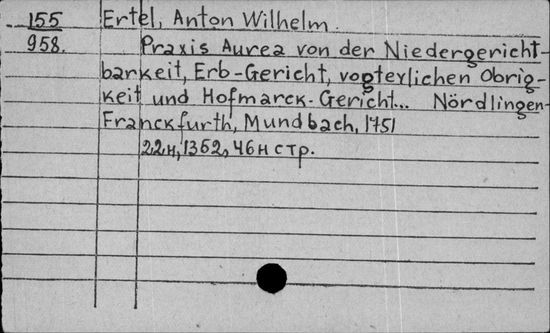 155 Ertel, Anton Wilhelm.
958. Praxis Aurea von der Niedergericht-
barkeit, Erb-Gericht, vogteylichen Obrig-
keit und Hofmarck-Gericht... Nördlingen-
Franckfurth, Mundbach, 1751
22н, 1362, 46н стр.